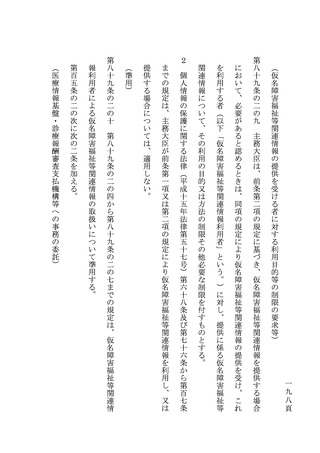 一九八頁
（仮名障害福祉等関連情報の提供を受ける者に対する利用目的等の制限の要求等）
第八十九条の二の九　主務大臣は、前条第二項の規定に基づき、仮名障害福祉等関連情報を提供する場合
において、必要があると認めるときは、同項の規定により仮名障害福祉等関連情報の提供を受け、これ
を利用する者（以下「仮名障害福祉等関連情報利用者」という。）に対し、提供に係る仮名障害福祉等
関連情報について、その利用の目的又は方法の制限その他必要な制限を付すものとする。
２　個人情報の保護に関する法律（平成十五年法律第五十七号）第六十八条及び第七十六条から第百七条
までの規定は、主務大臣が前条第一項又は第二項の規定により仮名障害福祉等関連情報を利用し、又は
提供する場合については、適用しない。
（準用）
第八十九条の二の十　第八十九条の二の四から第八十九条の二の七までの規定は、仮名障害福祉等関連情
報利用者による仮名障害福祉等関連情報の取扱いについて準用する。
第百五条の二の次に次の二条を加える。
（医療情報基盤・診療報酬審査支払機構等への事務の委託）